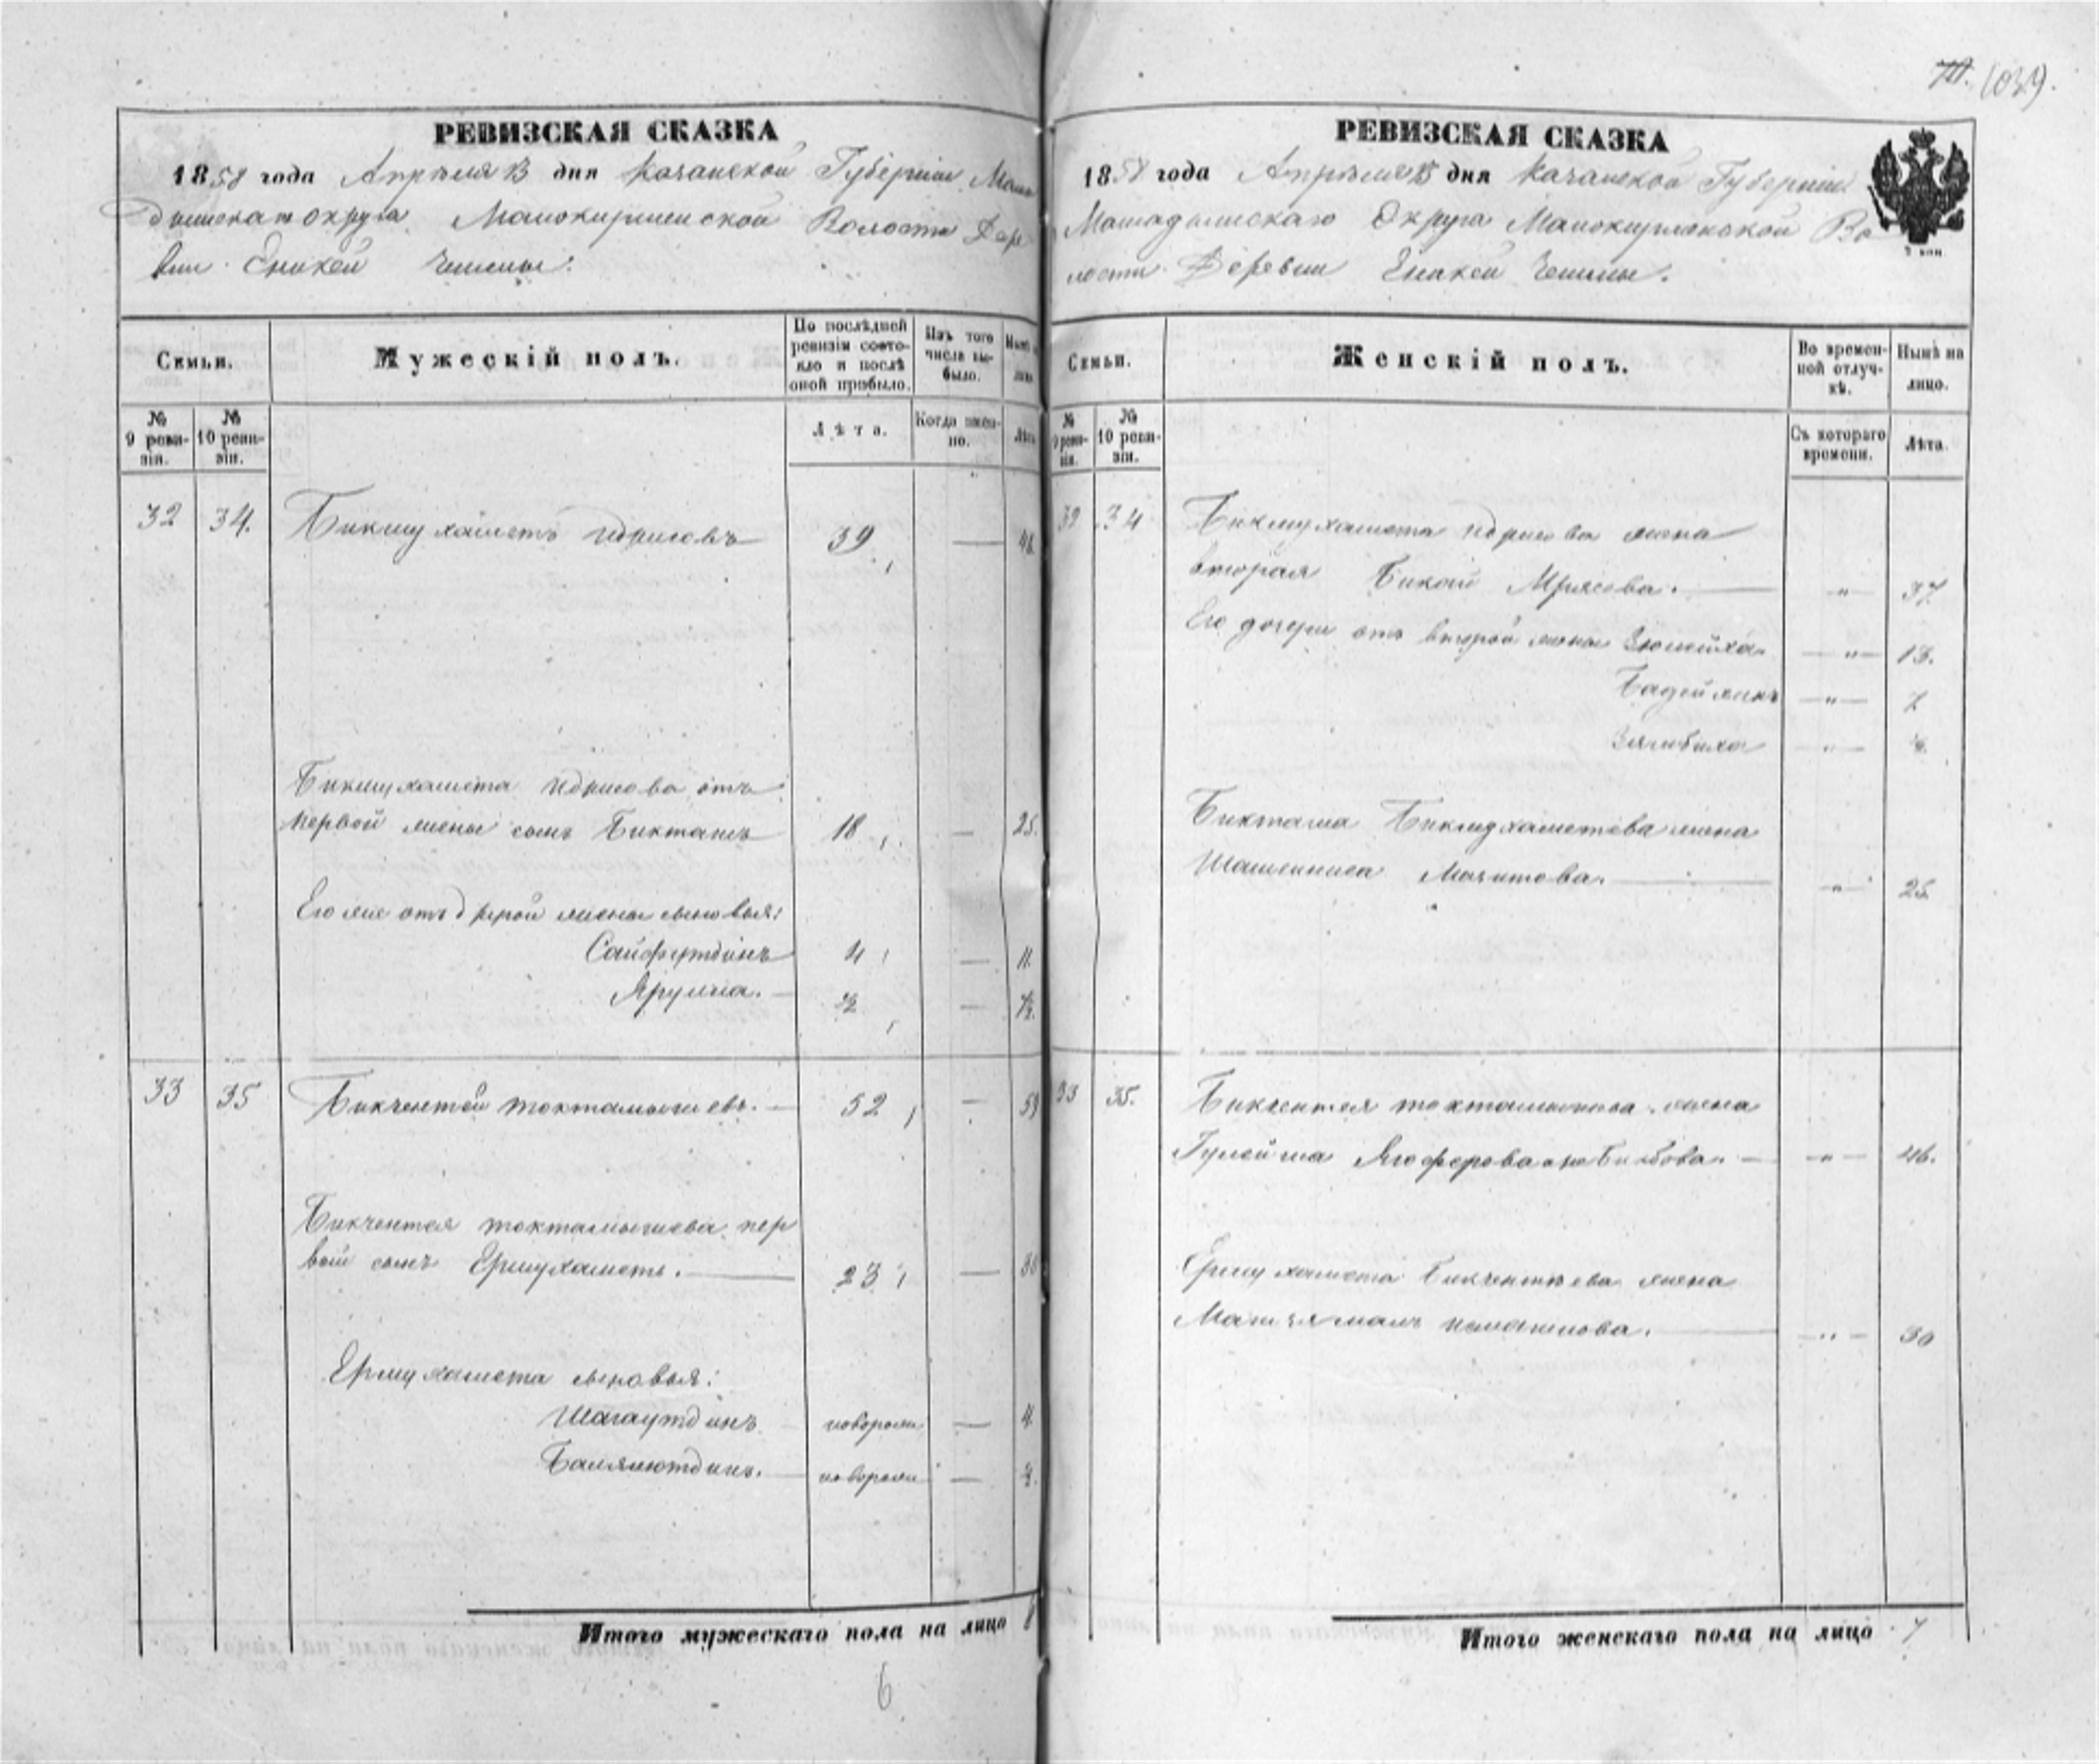 (039).
РЕВИЗСКАЯ СКАЗКА
1858 года Апреля 13 дня Казанской Губернии Мама
дышскаго округа Малокирменской Волости Дер
вни Еникей Чишмы.
Семьи.
Мужескій полъ.
По послѣдней ревизіи состояло и послѣ оной прибыло.
Изъ того числа выбыло.
№ 9 ревизіи.
№ 10 ревизіи.
Лѣта.
Когда именно.
Лѣта
32 34. Бикмухаметъ Идрисовъ 39 — 46.
Бикмухамета Идрисова отъ
первой жены сынъ Бикташъ 18 — 25.
Его же отъ второй жены сыновья:
Сайфутдинъ 4 — 11.
Ярулла. ½ — 7½.
33 35 Бикчентей Токтамышевъ. 52 — 59
Бикчентея Токтамышева пер
вый сынъ Ермухаметъ. 23 — 30
Ермухамета сыновья:
Шагаутдинъ новорож — 4.
Балялютдинъ. новорож —
Итого мужескаго пола на лицо 8
6
РЕВИЗСКАЯ СКАЗКА
1858 года Апреля 13 дня Казанской Губернии
Мамадышскаго Округа Малокирменской Во
лости Деревни Еникей Чишмы.
2 коп.
Семьи.
Женскій полъ.
Во временной отлучкѣ.
Нынѣ на лицо.
№ 9 ревизіи.
№ 10 ревизіи.
Съ котораго времени.
Лѣта.
32 34 Бикмухамета Идрисова жена
вторая Бикай Мрясова. — " — 37.
Его дочери отъ второй жены Зюлейха — " — 13.
— " — 7
Зямбика — " —
Бикташа Бикмухаметова жена
Мазитова. — " — 25.
33 35. Бикчентея Токтамышева жена
Гулейша Ягоферова — " — 46.
Ермухамета Бикчентеева жена
— " — 30
Итого женскаго пола на лицо 7